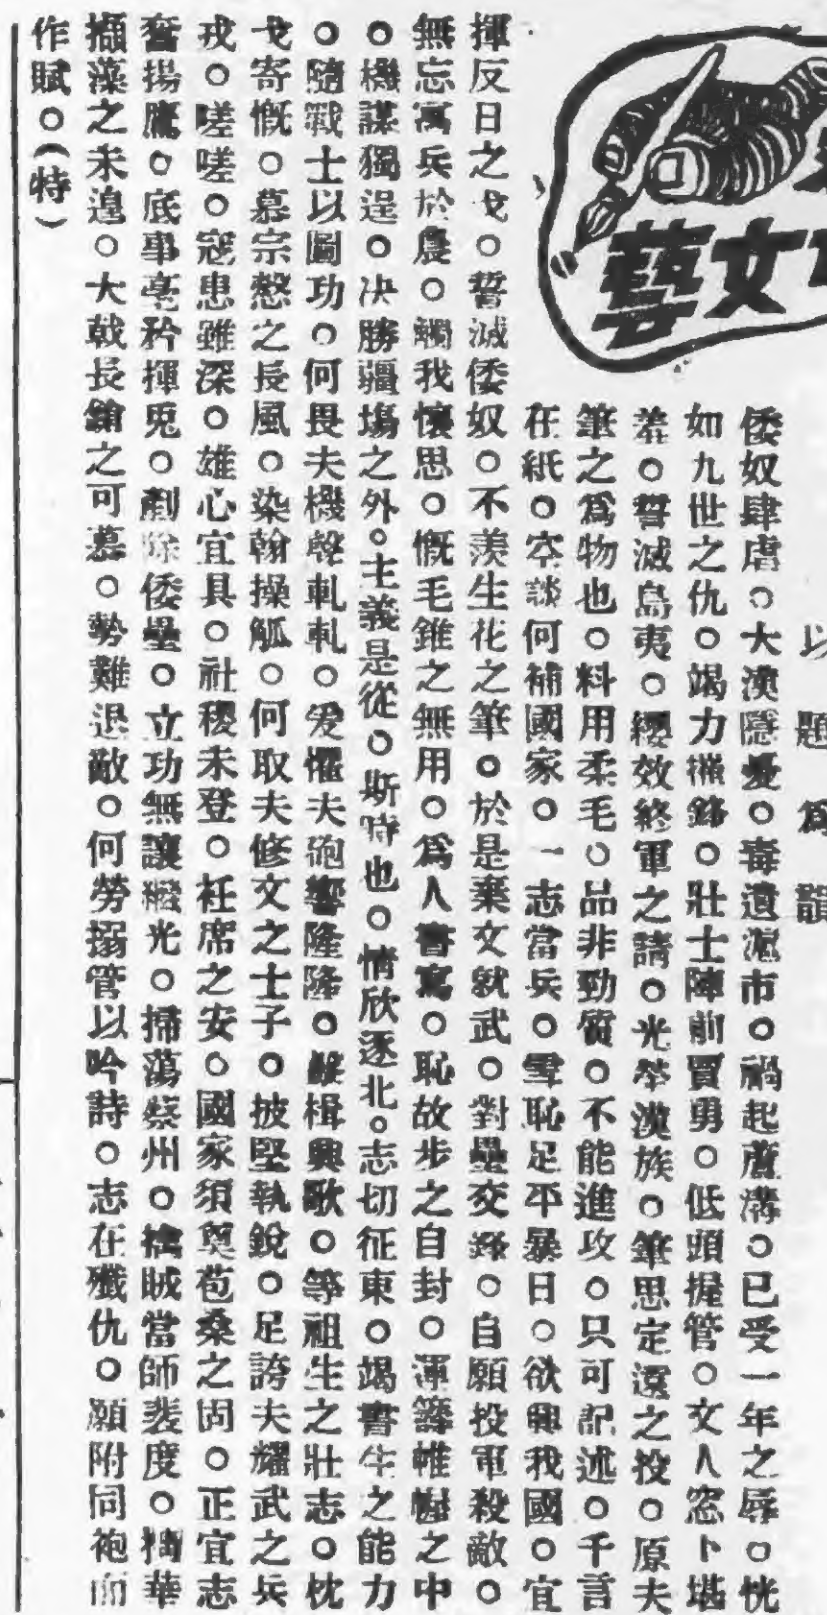 藝文
以題爲韻
倭奴肆虐。大漢隱憂。毒遺滬市。禍起蘆溝。已受一年之辱。恍
如九世之仇。竭力摧鋒。壯士陣前賈勇。低頭握管。文人窓下堪
羞。誓滅島夷。纓效終軍之請。光榮漢族。筆思定遠之投。原夫
筆之爲物也。料用柔毛。品非勁質。不能進攻。只可記述。千言
在紙。空談何補國家。一志當兵。雪恥足平暴日。欲興我國。宜
揮反日之戈。誓滅倭奴。不羨生花之筆。於是棄文就武。對壘交鋒。自願投軍殺敵。
無忘寓兵於農。觸我懷思。慨毛錐之無用。爲人書寫。恥故步之自封。運籌帷幄之中
。機謀獨逞。决勝疆塲之外。主義是從。斯時也。情欣逐北。志切征東。竭書生之能力
。隨戰士以圖功。何畏夫機聲軋軋。爰懼夫砲響隆隆。擊楫興歌。等祖生之壯志。枕
戈寄慨。慕宗慤之長風。染翰操觚。何取夫修文之士子。披堅執銳。足誇夫耀武之兵
戎。嗟嗟。寇患雖深。雄心宜具。社稷未登。衽席之安。國家須奠苞桑之固。正宜志
奮揚鷹。底事毫矜揮兎。剷除倭壘。立功無讓繼光。掃蕩蔡州。擒賊當師裴度。摛華
擷藻之未遑。大戟長鎗之可慕。勢難退敵。何勞搦管以吟詩。志在殲仇。願附同袍而
作賦。(特)